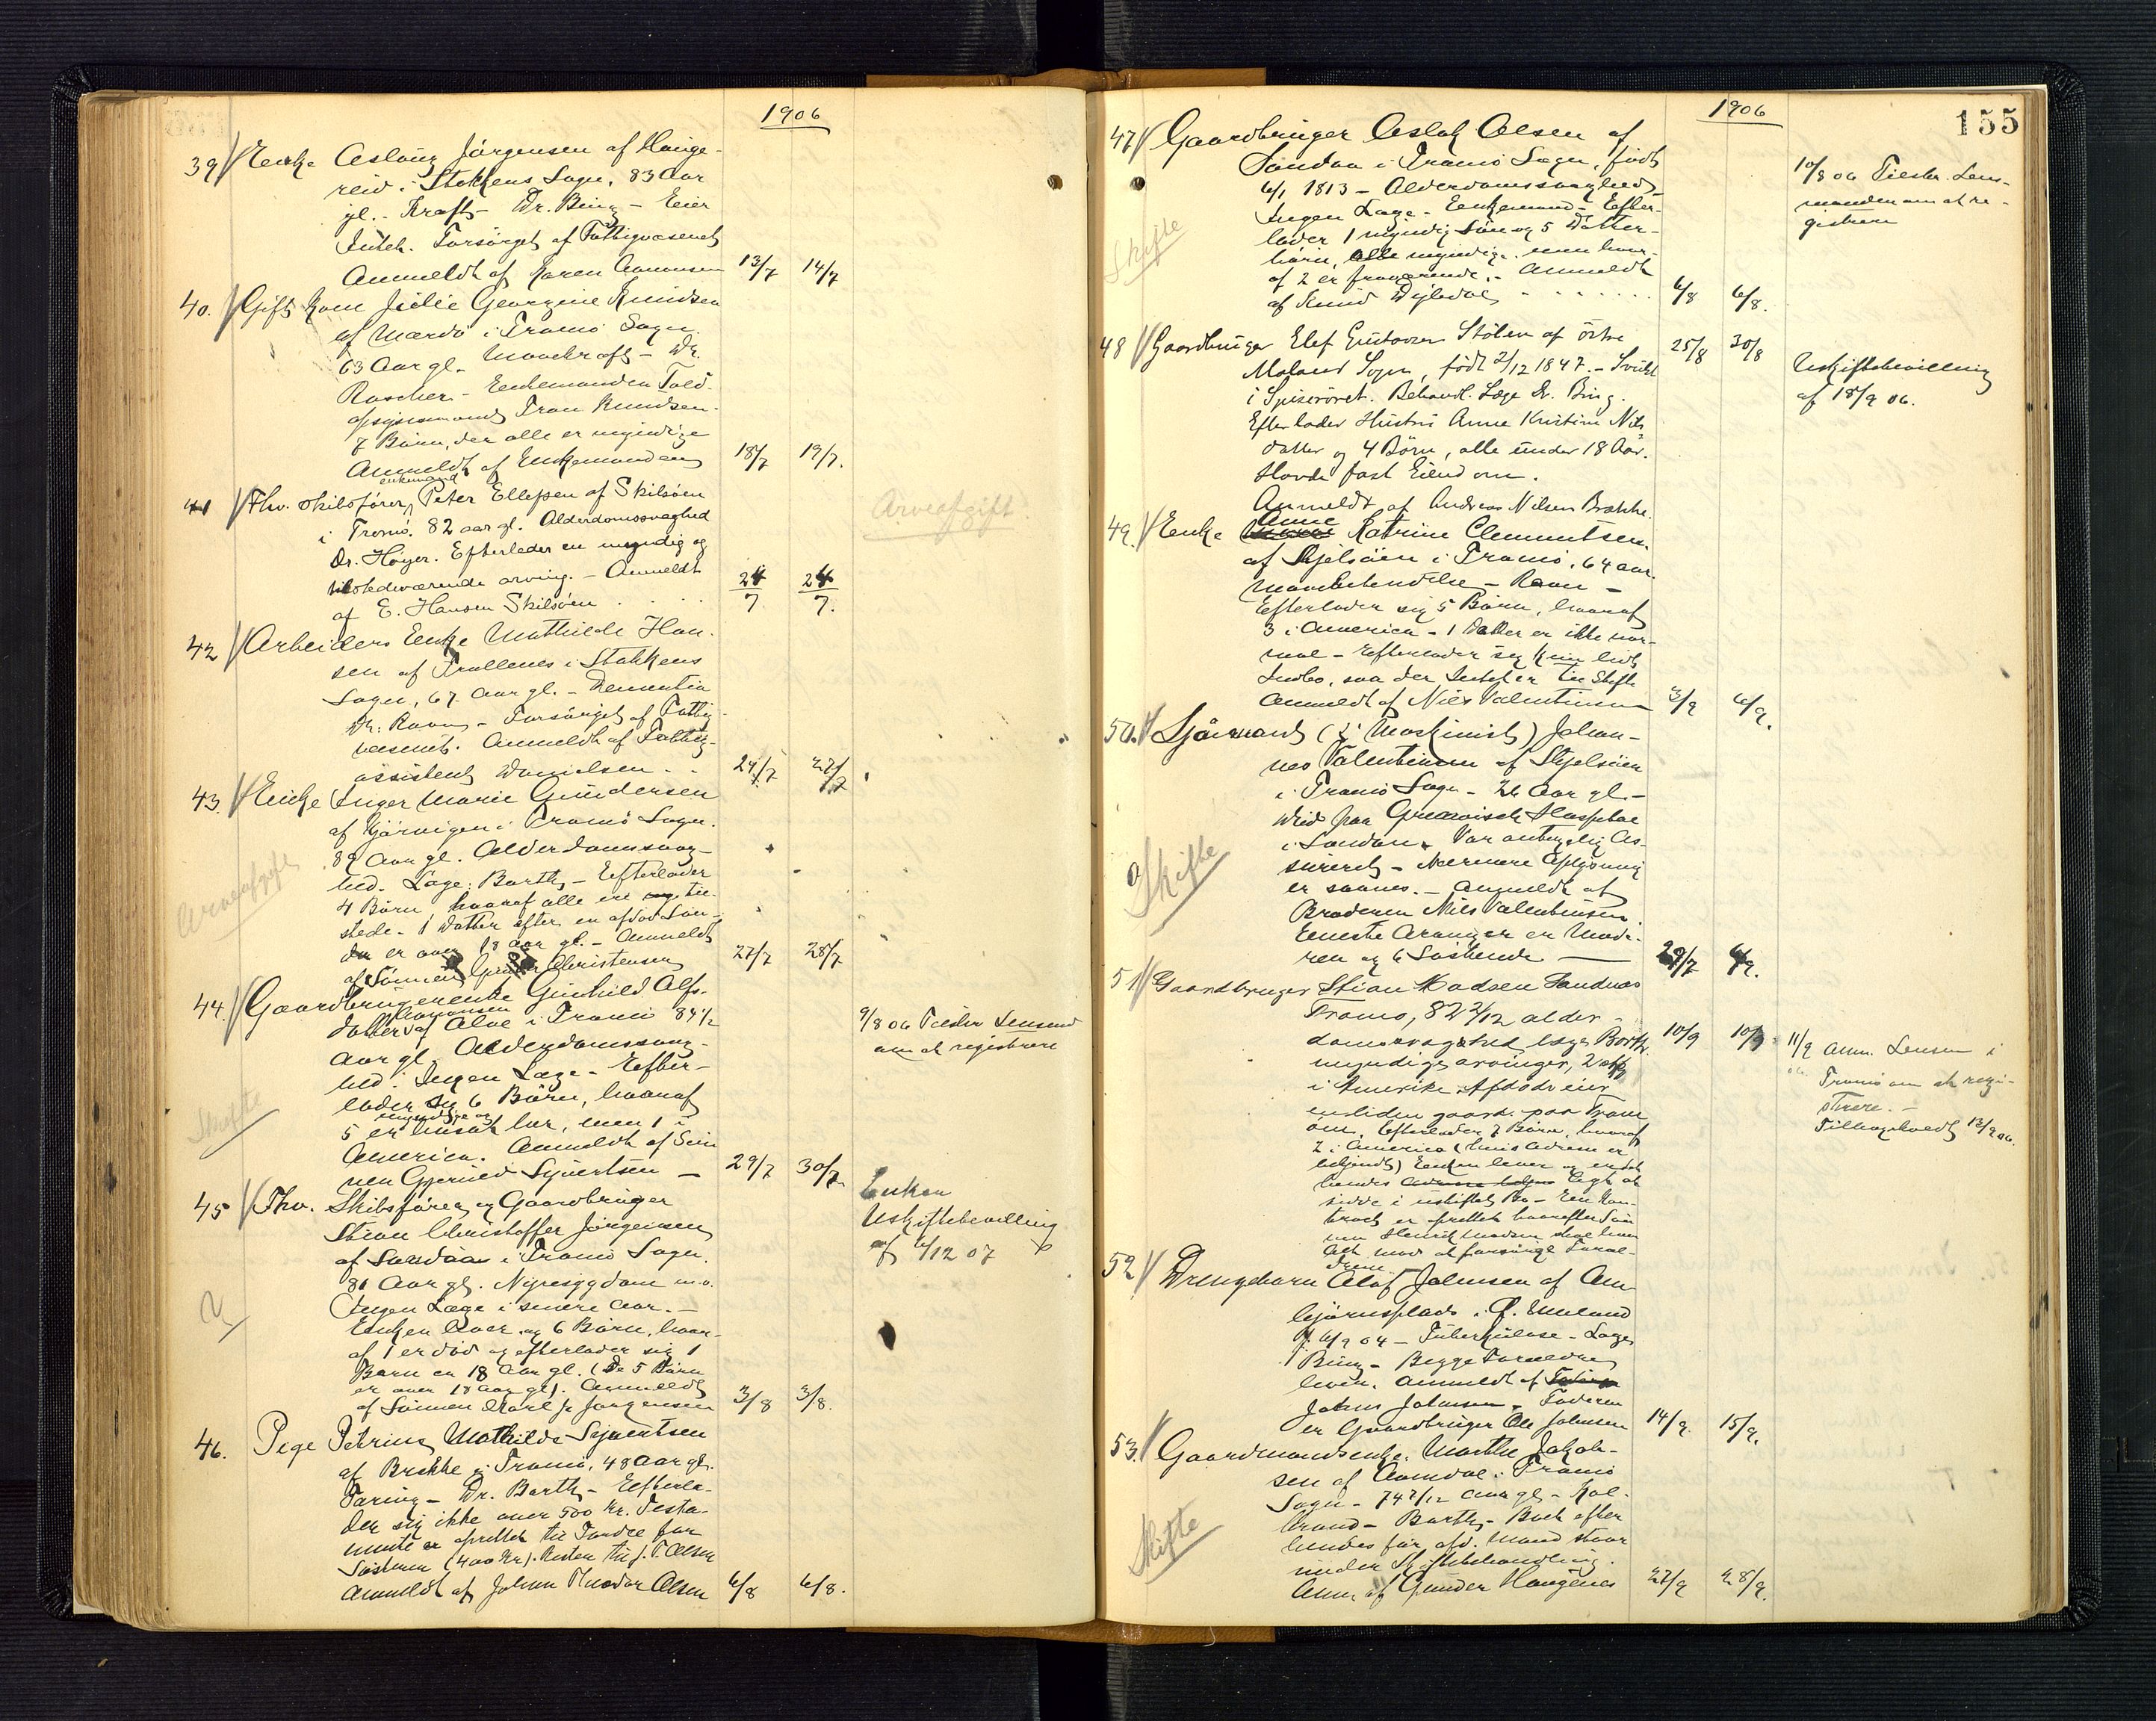 1906
39 Enke Aslaug Jörgensen af Hauge-
reid i Stokkens Sogn, 83 Aar
gl. - Kræft - Dr. Bing - Eier
Intet. Forsörget af Fattigvæsenet
Anmeldt af Karen Aanonsen 13/7 14/7
40. Gift Kone Julie Georgine Knudsen
af Mærdö i Tromö Sogn.
63 Aar gl. Mavekræft - Dr.
Roscher - Enkemanden Told-
opsynsmand Tron Knudsen.
7 Börn, der alle er myndige
Anmeldt af Enkemanden 18/7 19/7.
enkemand
41 Fhv. skibsförer Peter Ellefsen af Skilsöen
i Tromö. 82 aar gl. Alderdomssvaghed
Dr. Höyer. Efterlader en myndig og
tilstedeværende arving. - Anmeldt
af E. Hansen Skilsöen . . . 24/7 24/7.
Arveafgift.
42 Arbeiders Enke Mathilde Han-
sen af Trollenes i Stokkens
Sogn, 67 Aar gl. - Dementia
Dr. Ravn - Forsörget af Fattig-
væsenet. Anmeldt af Fattig-
assistent Danielsen . . 24/7 27/7
43. Enke Inger Marie Gundersen
af Gjervigen i Tromö Sogn.
89 Aar gl. Alderdomssvag-
hed. Læge: Barth - Efterlader
4 Börn hvoraf alle ere til-
stede - 1 Datter efter en afdöd Sön
der er over 18 aar gl. - Anmeldt
af Sönnen Christensen 27/7 28/7
Arveafgift
44. Gaardbrugerenke Gunhild Alfs-
Aanonsen
datter af Alve i Tromö 84 1/2
Aar gl. Alderdomssvag-
hed. Ingen Læge - Efter-
lader sig 6 Börn, hvoraf
myndige og
5 er bosat her, men 1 i
America. Anmeldt af Sön-
nen Gjerued Syvertsen - 29/7 30/7
9/8 06 Tilskr. Lensmd
om at registrere
Skifte
45 Fhv. Skibsförer og Gaardbruger
Stian Christoffer Jörgensen
af Sandaa i Tromö Sogn.
81 Aar gl. Nyresygdom m.v.
Ingen Læge i senere Aar. -
Enken lever og 6 Börn, hvor-
af 1 er död og efterlader sig 1
Barn en 18 Aar gl. (De 5 Börn
er over 18 aar gl). Anmeldt
af Sönnen Karl J. Jörgensen 3/8 3/8.
Enken
Uskiftebevilling
af 6/12 07
46. Pige Petrine Mathilde Syvertsen
af Brekke i Tromö, 48 Aar gl.
Tæring - Dr. Barth - Efterla-
der sig ikke over 500 Kr. Testa-
mente er oprettet til Fordel for
Söstrene (400 Kr). Resten til J. T. Olsen
Anmeldt af Johan Theodor Olsen 6/8 6/8.
155
1906
47 Gaardbruger Aslak Olsen af
Sandaa i Tromö Sogn, födt
6/1 1813 - Alderdomssvaghed
Ingen Læge - Enkemand - Efter-
lader 1 myndig Sön og 5 Datter-
börn, alle myndige, men hvor-
af 2 er fraværende. - Anmeldt
af Knud Dybdal . . . . . . 6/8 6/8.
10/8 06 Tilskr. Lens-
manden om at re-
gistrere
Skifte
48 Gaardbruger Elef Gustavsen Stölen af östre
Moland Sogn, födt 2/12 1847. - Svulst
i Spiseröret. Behandl. Læge Dr. Bing.
Efterlader Hustru Anne Kristine Nils-
datter og 4 Börn, alle under 18 Aar.
Havde fast Eiendom.
Anmeldt af Andreas Nilsen Brække. 25/8 30/8
Uskiftebevilling
af 18/9 06.
Anne
49. Enke Katrine Clemmetsen
af Skjelsöen i Tromö, 64 aar.
Mavebetændelse - Ravn -
Efterlader sig 5 Börn, hvoraf
3 i America - 1 Datter er ikke nor-
mal - Efterlader sig kun lidt
Indbo, saa der Intet er til Skifte
Anmeldt af Niels Valentinsen 3/9 6/9.
50. Sjömand ( Maskinist) Johan-
nes Valentinsen af Skjelsöen
i Tromö Sogn - 26 Aar gl. -
Död paa Greenwich Hospital
i London. Var antagelig As-
sureret - Nærmere Oplysning
er savnes. - Anmeldt af
Broderen Niels Valentinsen.
Eneste Arvinger er Mode-
ren og 6 Söskende 29/7 6/9.
Skifte
51 Gaardbruger Stian Madsen Sandnæs
Tromö, 82 2/12 alder-
domssvaghed, læge Barth.
myndige arvinger, 2 af
i Amerika. Afdöde eier
en liden gaard paa Trom-
öen. Efterlader 7 Börn, hvoraf
2 i America (hvis Adresse er
bekjendt) Enken lever og er det
hendes Agt at
sidde i uskiftet Bo - En Kon-
trakt er oprettet hvorefter Sön-
nen Henrik Madsen skal have
det mod at forsörge Foræl-
drene 10/9 10/9
11/9 Anm. Lensm i
06 Tromö om at regi-
strere. -
Tilbagekaldt 13/9 06.
52 Drengebarn Olaf Johnsen af Am-
björnsplads, Ö. Moland
f. 6/9 04 - Tuberkulose - Læge
Bing - Begge Forældre
lever. Anmeldt af
Johns Johnsen. Faderen
er Gaardbruger Ole Johnsen 14/9 15/9.
53. Gaardmandsenke Marthe Jakob-
sen af Aamdal i Tromö
Sogn - 74 7/12 Aar gl. - Kol-
brand - Barth - Boet efter
hendes för afd. Mand staar
under Skiftebehandling.
Anm. af Gunder Haugenes 27/9 28/9.
Skifte